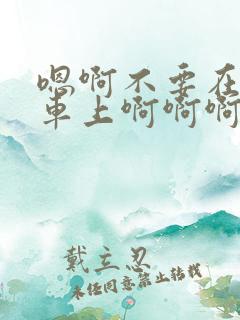 嗯啊不要在
車上啊啊啊
戴立忍
未经同意禁止转载